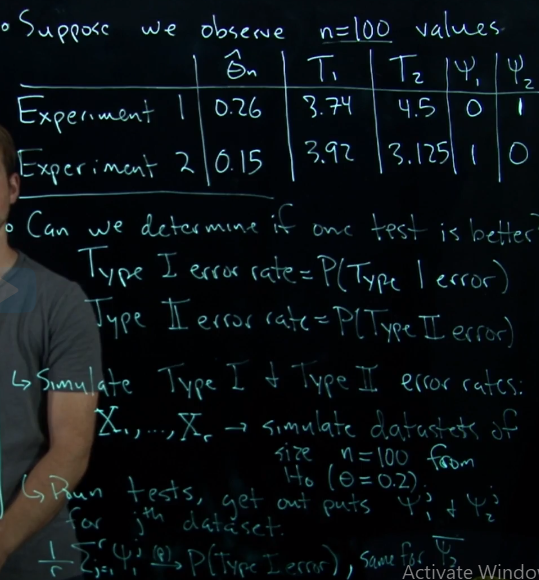 • Suppose we observe n=100 values
θ̂n T₁ T₂ Ψ₁ Ψ₂
Experiment 1 0.26 3.74 4.5 0 1
Experiment 2 0.15 3.92 3.125 1 0
• Can we determine if one test is better?
Type I error rate = P(Type I error)
Type II error rate = P(Type II error)
↳ Simulate Type I & Type II error rates:
X₁,...,Xᵣ → simulate datastets of
size n=100 from
H₀ (θ=0.2)
↳ Run tests, get out puts Ψ₁ʲ & Ψ₂ʲ
for jth dataset.
1/r Σⱼ₌₁ʳ Ψ₁ʲ (P)→ P(Type I error), same for Ψ̄₂
Activate Window